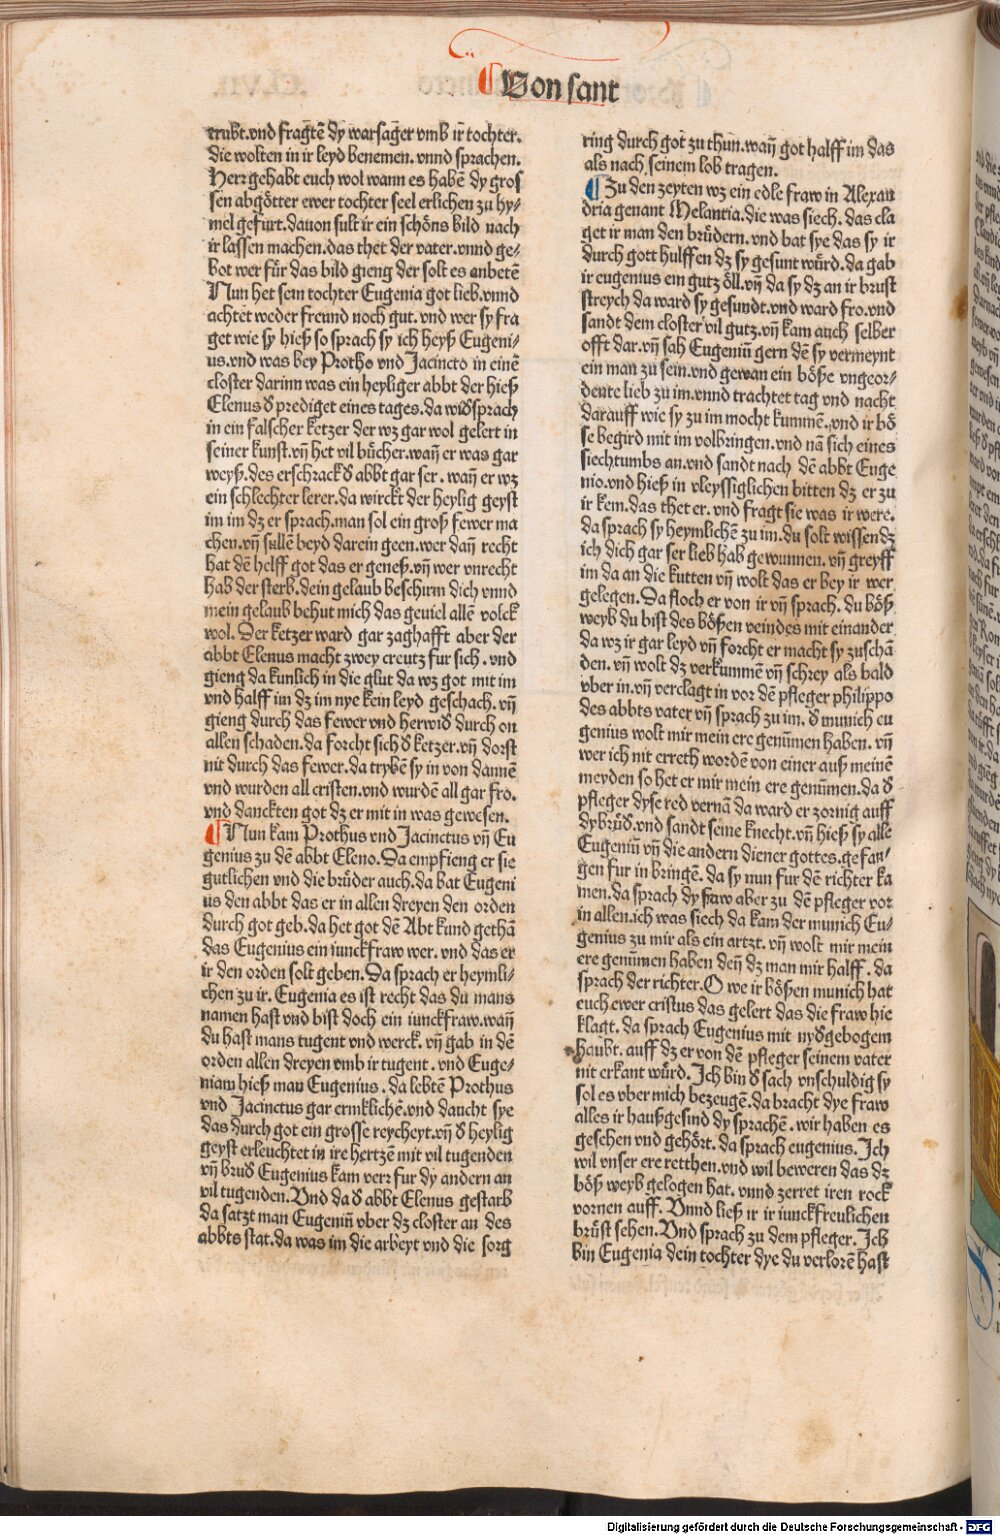 ¶ Von sant
trubt.vnd fragtẽ dy warsager vmb ir tochter.
die wolten in ir leyd benemen. vnnd sprachen.
Herr gehabt euch wol wann es habẽ dy gros
sen abgötter ewer tochter seel erlichen zu hy⸗
mel gefürt.dauon sult ir ein schöns bild nach
ir lassen machen.das thet der vater.vnnd ge⸗
bot wer für das bild gieng der solt es anbetẽ
Nun het sein tochter Eugenia got lieb.vnnd
achtet weder freund noch gut. vnd wer sy fra
get wie sy hieß so sprach sy ich heyß Eugeni⸗
us.vnd was bey Protho vnd Jacincto in einẽ
closter darinn was ein heyliger abbt der hieß
Elenus đ prediget eines tages.da widsprach
in ein falscher ketzer der wz gar wol gelert in
seiner kunst.vñ het vil bücher.wañ er was gar
weyß.des erschrack đ abbt gar ser. wañ er wz
ein schlechter lerer.da wirckt der heylig geyst
im im dz er sprach.man sol ein groß fewer ma
chen.vñ süllẽ beyd darein geen.wer dañ recht
hat dẽ helff got das er geneß.vñ wer vnrecht
hab der sterb.dein gelaub beschirm dich vnnd
mein gelaub behut mich das geuiel allẽ volck
wol. Der ketzer ward gar zaghafft aber der
abbt Elenus macht zwey creutz fur sich. vnd
gieng da kunlich in die glut da wz got mit im
vnd halff im dz im nye kein leyd geschach. vñ
gieng durch das fewer vnd herwid durch on
allen schaden.da forcht sich đ ketzer.vñ dorst
nit durch das fewer.da trybẽ sy in von dannẽ
vnd wurden all cristen.vnd wurdẽ all gar fro.
vnd danckten got dz er mit in was gewesen.
¶ Nun kam Prothus vnd Jacinctus vñ Eu
genius zu dẽ abbt Eleno. Da empfieng er sie
gutlichen vnd die brüder auch.da bat Eugeni
us den abbt das er in allen dreyen den orden
durch got geb.da het got dẽ Abt kund gethã
das Eugenius ein iunckfraw wer. vnd das er
ir den orden solt geben. Da sprach er heymli⸗
chen zu ir. Eugenia es ist recht das du mans
namen hast vnd bist doch ein iunckfraw.wañ
du hast mans tugent vnd werck. vñ gab in dẽ
orden allen dreyen vmb ir tugent. vnd Euge⸗
niam hieß man Eugenius. da lebtẽ Prothus
vnd Jacinctus gar ermklichẽ.vnd daucht sye
das durch got ein grosse reycheyt.vñ đ heylig
geyst erleuchtet in ire hertzẽ mit vil tugenden
vñ brud Eugenius kam verr fur dy andern an
vil tugenden.Vnd da đ abbt Elenus gestarb
da satzt man Eugeniũ vber dz closter an des
abbts stat.da was im die arbeyt vnd die sorg
ring durch got zu thun.wañ got halff im das
als nach seinem lob tragen.
¶ Zu den zeyten wz ein edle fraw in Alexan
dria genant Melantia.die was siech. das cla
get ir man den brüdern. vnd bat sye das sy ir
durch gott hulffen dz sy gesunt würd. da gab
ir eugenius ein gutz öll.vñ da sy dz an ir brust
streych da ward sy gesundt.vnd ward fro.vnd
sandt dem closter vil gutz.vñ kam auch selber
offt dar.vñ sah Eugeniũ gern dẽ sy vermeynt
ein man zu sein.vnd gewan ein böße vngeor⸗
dente lieb zu im.vnnd trachtet tag vnd nacht
darauff wie sy zu im mocht kummẽ.vnd ir bö
se begird mit im volbringen.vnd nã sich eines
siechtumbs an.vnd sandt nach dẽ abbt Euge
nio.vnd hieß in vleyssiglichen bitten dz er zu
ir kem.das thet er. vnd fragt sie was ir were.
da sprach sy heymlichẽ zu im.du solt wissen dz
ich dich gar ser lieb hab gewunnen. vñ greyff
im da an die kutten vñ wolt das er bey ir wer
gelegen. Da floch er von ir vñ sprach. du böß
weyb du bist des bößen veindes mit einander
da wz ir gar leyd vñ forcht er macht sy zuschã
den. vñ wolt dz verkummẽ vñ schrey als bald
vber in.vñ verclagt in vor dẽ pfleger philippo
des abbts vater vñ sprach zu im. đ munich eu
genius wolt mir mein ere genũmen haben. vñ
wer ich nit erreth wordẽ von einer auß meinẽ
meyden so het er mir mein ere genũmen.da đ
pfleger dyse red vernã da ward er zornig auff
dy brüd.vnd sandt seine knecht.vñ hieß sy alle
Eugeniũ vñ die andern diener gottes.gefan⸗
gen fur in bringẽ. da sy nun fur dẽ richter ka
men.da sprach dy fraw aber zu dẽ pfleger vor
in allen.ich was siech da kam der munich Eu⸗
genius zu mir als ein artzt. vñ wolt mir mein
ere genũmen haben deñ dz man mir halff. da
sprach der richter. O we ir bößen munich hat
euch ewer cristus das gelert das die fraw hie
klagt. da sprach Eugenius mit nydgebogem
haubt. auff dz er von dẽ pfleger seinem vater
nit erkant würd. Ich bin đ sach vnschuldig sy
sol es vber mich bezeugẽ.da bracht dye fraw
alles ir haußgesind dy sprachẽ. wir haben es
geschen vnd gehört. da sprach eugenius. Ich
wil vnser ere retthen.vnd wil beweren das dz
böß weyb gelogen hat. vnnd zerret iren rock
vornen auff. Vnnd ließ ir ir iunckfreulichen
brüst sehen. Vnd sprach zu dem pfleger. Ich
bin Eugenia dein tochter dye du verlorẽ hast
Digitalisierung gefördert durch die Deutsche Forschungsgemeinschaft - DFG